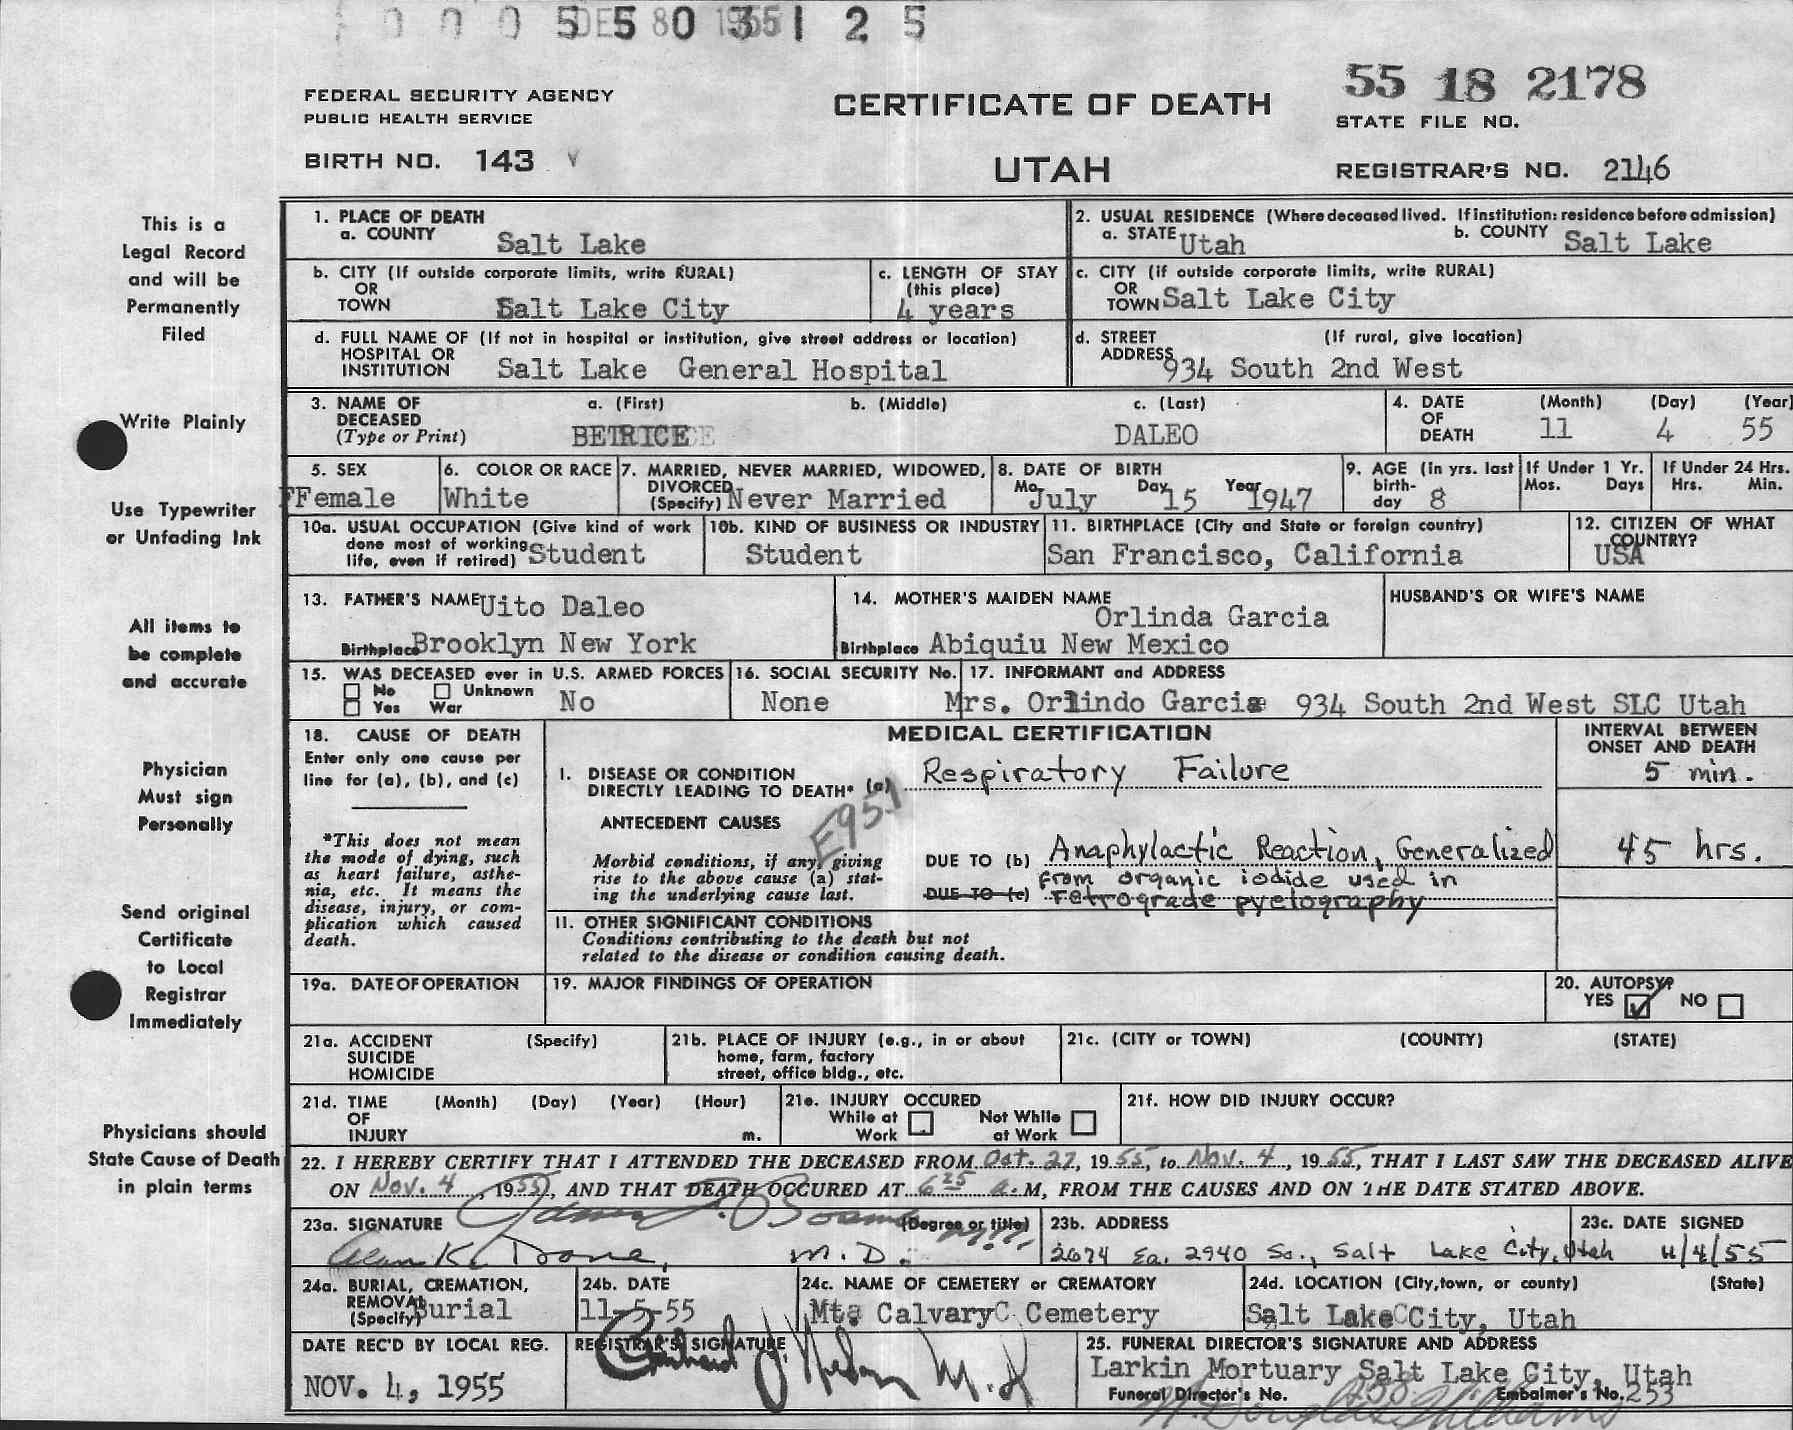 0 0 0 5 5 5 0 3 1 2 5
DEC 8 1955
55 18 2178
FEDERAL SECURITY AGENCY
PUBLIC HEALTH SERVICE
CERTIFICATE OF DEATH
STATE FILE NO.
BIRTH NO. 143
UTAH
REGISTRAR'S NO. 2146
This is a
Legal Record
and will be
Permanently
Filed
Write Plainly
Use Typewriter
or Unfading Ink
All items to
be complete
and accurate
Physician
Must sign
Personally
Send original
Certificate
to Local
Registrar
Immediately
Physicians should
State Cause of Death
in plain terms
1. PLACE OF DEATH
a. COUNTY Salt Lake
2. USUAL RESIDENCE (Where deceased lived. If institution: residence before admission)
a. STATE Utah b. COUNTY Salt Lake
b. CITY (If outside corporate limits, write RURAL)
OR
TOWN Salt Lake City
c. LENGTH OF STAY
(this place)
4 years
c. CITY (if outside corporate limits, write RURAL)
OR
TOWN Salt Lake City
d. FULL NAME OF (If not in hospital or institution, give street address or location)
HOSPITAL OR
INSTITUTION Salt Lake General Hospital
d. STREET (If rural, give location)
ADDRESS 934 South 2nd West
3. NAME OF a. (First) b. (Middle) c. (Last)
DECEASED
(Type or Print) BETRICE DALEO
4. DATE (Month) (Day) (Year)
OF
DEATH 11 4 55
5. SEX
Female
6. COLOR OR RACE
White
7. MARRIED, NEVER MARRIED, WIDOWED,
DIVORCED
(Specify) Never Married
8. DATE OF BIRTH
Mo. July Day 15 Year 1947
9. AGE (in yrs. last
birth-
day 8
If Under 1 Yr.
Mos. Days
If Under 24 Hrs.
Hrs. Min.
10a. USUAL OCCUPATION (Give kind of work
done most of working
life, even if retired) Student
10b. KIND OF BUSINESS OR INDUSTRY
Student
11. BIRTHPLACE (City and State or foreign country)
San Francisco, California
12. CITIZEN OF WHAT
COUNTRY?
USA
13. FATHER'S NAME Uito Daleo
Birthplace Brooklyn New York
14. MOTHER'S MAIDEN NAME
Orlinda Garcia
Birthplace Abiquiu New Mexico
HUSBAND'S OR WIFE'S NAME
15. WAS DECEASED ever in U.S. ARMED FORCES
No Unknown
Yes War No
16. SOCIAL SECURITY No.
None
17. INFORMANT and ADDRESS
Mrs. Orlindo Garcia 934 South 2nd West SLC Utah
18. CAUSE OF DEATH
Enter only one cause per
line for (a), (b), and (c)
*This does not mean
the mode of dying, such
as heart failure, asthe-
nia, etc. It means the
disease, injury, or com-
plication which caused
death.
MEDICAL CERTIFICATION
INTERVAL BETWEEN
ONSET AND DEATH
I. DISEASE OR CONDITION
DIRECTLY LEADING TO DEATH* (a) Respiratory Failure 5 min.
ANTECEDENT CAUSES
E951
Morbid conditions, if any, giving
rise to the above cause (a) stat-
ing the underlying cause last.
DUE TO (b) Anaphylactic Reaction, Generalized 45 hrs.
from organic iodide used in
DUE TO (c) retrograde pyelography
II. OTHER SIGNIFICANT CONDITIONS
Conditions contributing to the death but not
related to the disease or condition causing death.
19a. DATE OF OPERATION
19. MAJOR FINDINGS OF OPERATION
20. AUTOPSY?
YES NO
21a. ACCIDENT (Specify)
SUICIDE
HOMICIDE
21b. PLACE OF INJURY (e.g., in or about
home, farm, factory
street, office bldg., etc.
21c. (CITY or TOWN) (COUNTY) (STATE)
21d. TIME (Month) (Day) (Year) (Hour)
OF
INJURY m.
21e. INJURY OCCURED
While at Not While
Work at Work
21f. HOW DID INJURY OCCUR?
22. I HEREBY CERTIFY THAT I ATTENDED THE DECEASED FROM Oct. 27, 1955, to Nov. 4, 1955, THAT I LAST SAW THE DECEASED ALIVE
ON Nov. 4, 1955, AND THAT DEATH OCCURED AT 6 25 a.M, FROM THE CAUSES AND ON THE DATE STATED ABOVE.
23a. SIGNATURE (Degree or title)
Alan K. Doane, M.D.
23b. ADDRESS
2674 Ea. 2940 So., Salt Lake City, Utah
23c. DATE SIGNED
11/4/55
24a. BURIAL, CREMATION,
REMOVAL
(Specify) Burial
24b. DATE
11-5-55
24c. NAME OF CEMETERY or CREMATORY
Mt. Calvary C Cemetery
24d. LOCATION (City, town, or county) (State)
Salt Lake City, Utah
DATE REC'D BY LOCAL REG.
NOV. 4, 1955
REGISTRAR'S SIGNATURE
25. FUNERAL DIRECTOR'S SIGNATURE AND ADDRESS
Larkin Mortuary Salt Lake City, Utah
Funeral Director's No. Embalmer's No. 253